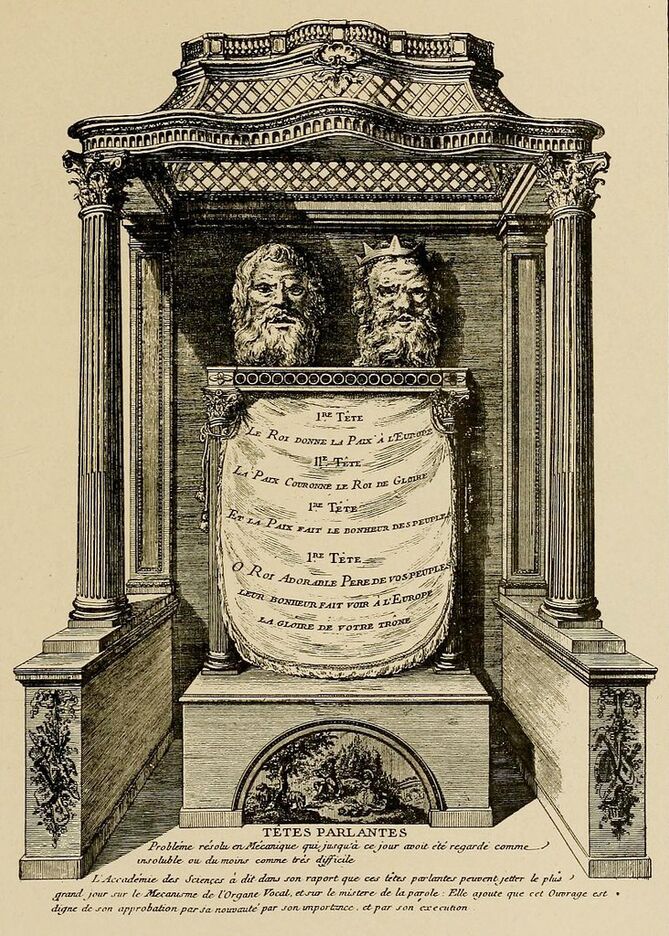 1RE TÊTE
LE ROI DONNE LA PAIX À L'EUROPE
IIE TÊTE
LA PAIX COURONNE LE ROI DE GLOIRE
1RE TÊTE
ET LA PAIX FAIT LE BONHEUR DES PEUPLES
1RE TÊTE
O ROI ADORABLE PERE DE VOS PEUPLES
LEUR BONHEUR FAIT VOIR A L'EUROPE
LA GLOIRE DE VOTRE TRONE
TÊTES PARLANTES
Problême résolu en Mécanique qui jusqu'à ce jour avoit été regardé comme
insoluble ou du moins comme très difficile
L'Accadémie des Sciences à dit dans son raport que ces têtes parlantes peuvent jetter le plus
grand jour sur le Mecanisme de l'Organe Vocal, et sur le mistere de la parole : Elle ajoute que cet Ouvrage est
digne de son approbation par sa nouvauté par son importance, et par son éxécution